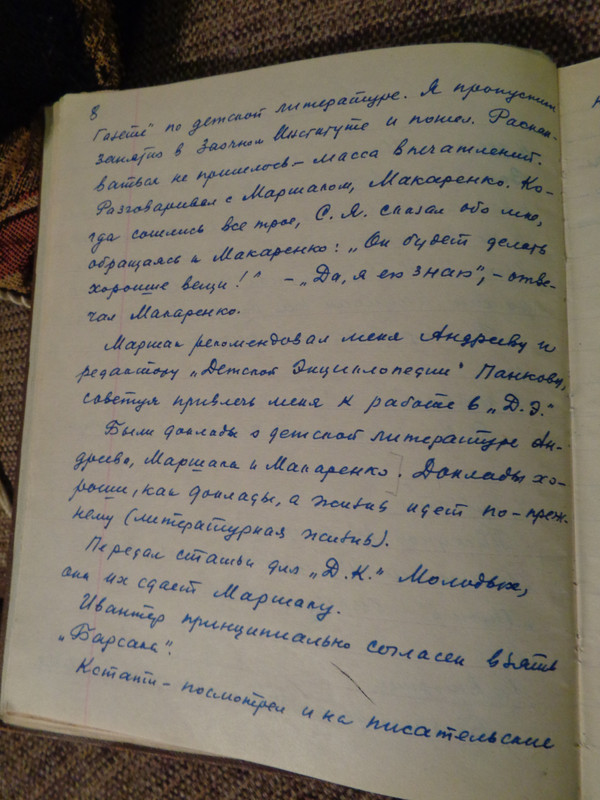 8
Газете" по детской литературе. Я пропустил
занятия в Заочном Институте и пошел. Раскаи-
ваться не пришлось – масса впечатлений.
Разговаривал с Маршаком, Макаренко. Ко-
гда сошлись все трое, С. Я. сказал обо мне,
обращаясь к Макаренко: „Он будет делать
хорошие вещи!" – „Да, я его знаю", – отве-
чал Макаренко.
Маршак рекомендовал меня Андрееву и
редактору „Детской Энциклопедии" Панкову,
советуя привлечь меня к работе в „Д.Э."
Были доклады о детской литературе Ан-
дреева, Маршака и Макаренко. Доклады хо-
роши, как доклады, а жизнь идет по-преж-
нему (литературная жизнь).
Передал статьи для „Д.К." Молодых,
она их сдаст Маршаку.
Ивантер принципиально согласен взять
„Барсака".
Кстати – посмотрел и на писательские